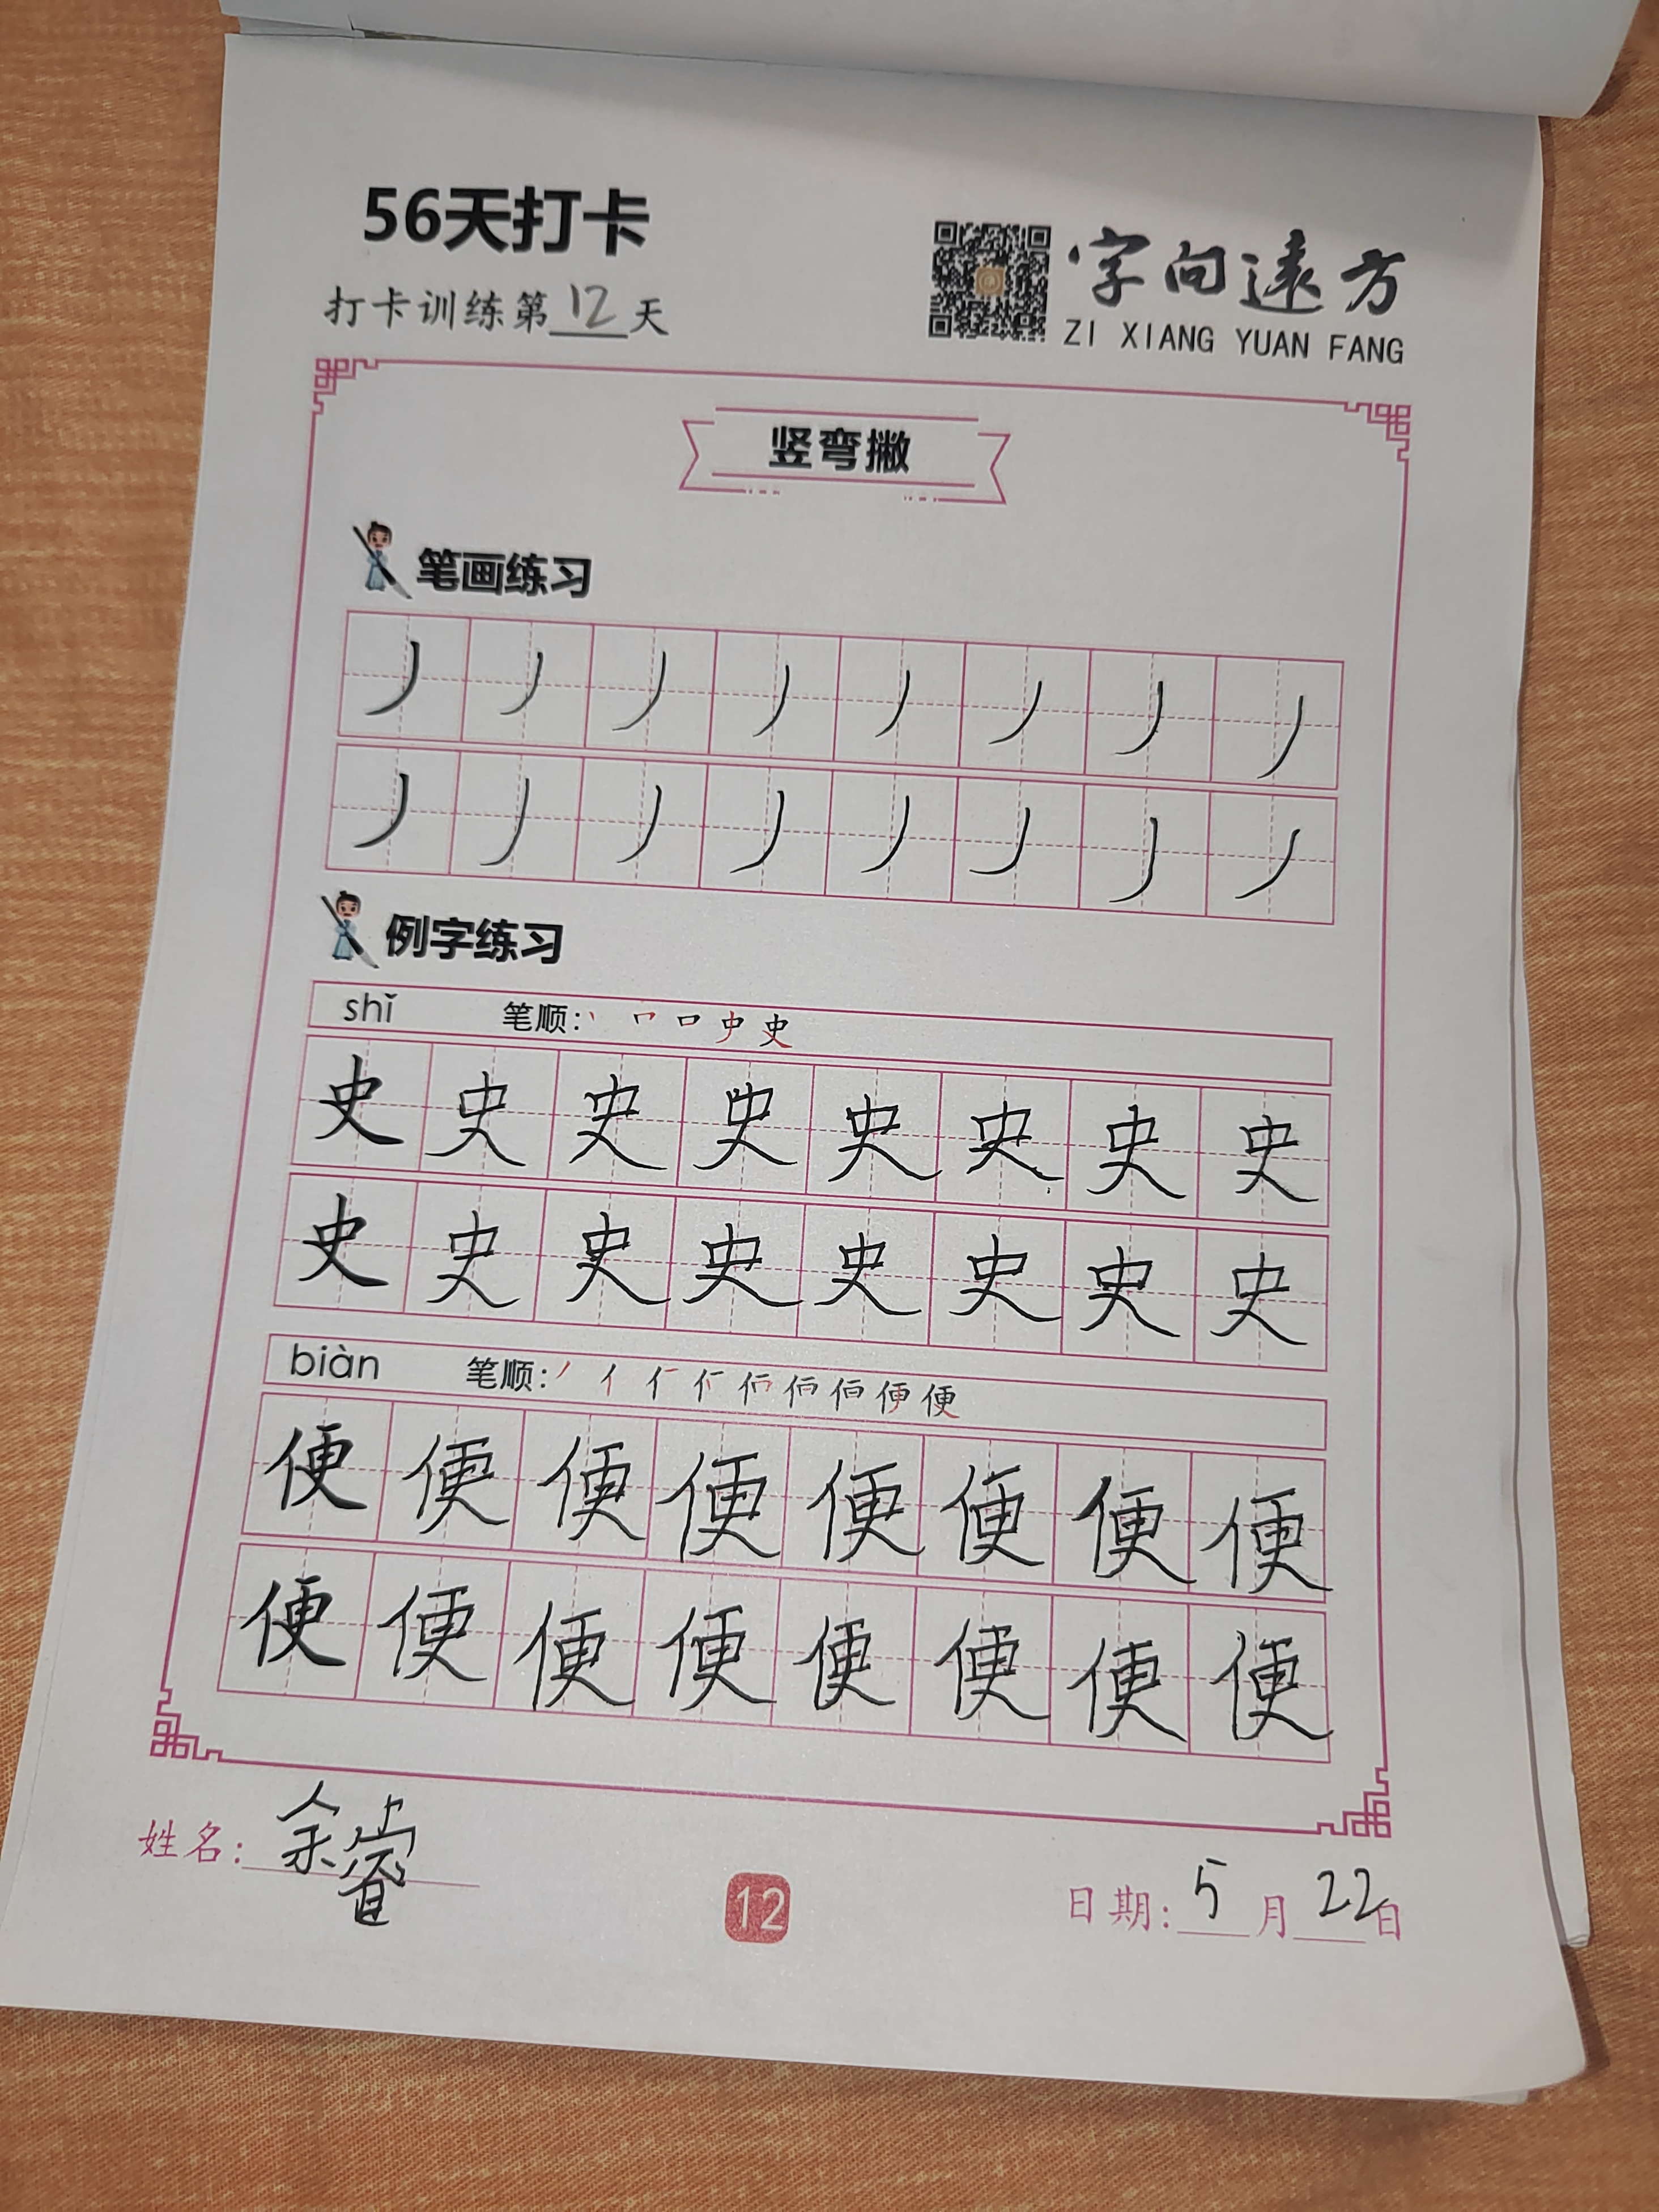 56天打卡
打卡训练第12天
字向远方
ZI XIANG YUAN FANG
竖弯撇
笔画练习
丿丿丿丿丿丿丿丿
丿丿丿丿丿丿丿丿
例字练习
shǐ 笔顺:
史史史史史史史史
史史史史史史史史
biàn 笔顺:
便便便便便便便便
便便便便便便便便
姓名: 余
12
日期: 5月22日